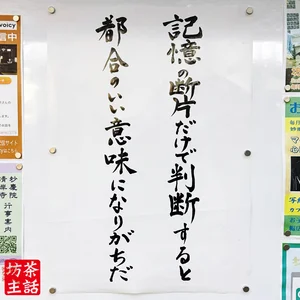 記憶の断片だけで判断すると
都合のいい意味になりがちだ
voicy
信中
妙慶院
清岸寺
行事案内
坊主
茶話